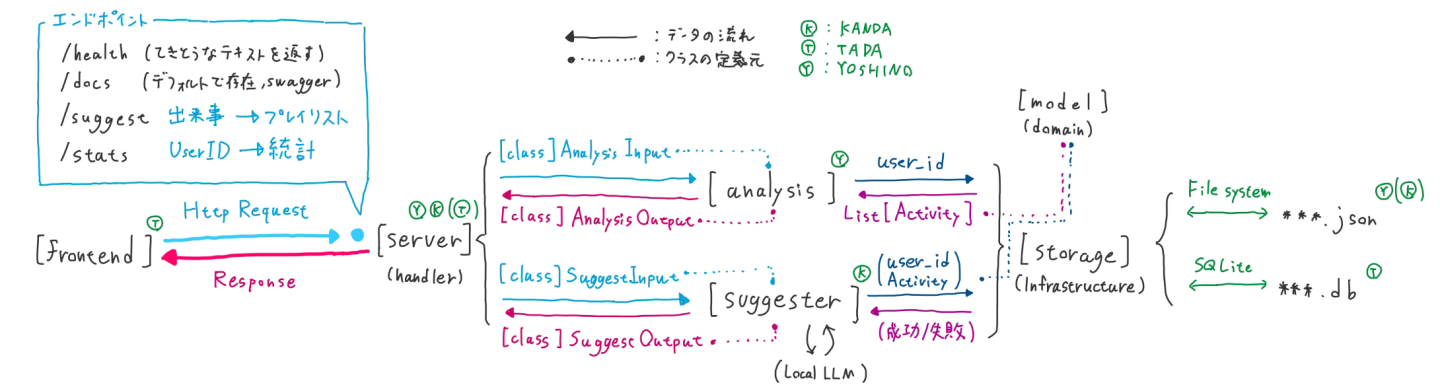 エンドポイント
/health (てきとうなテキストを返す)
/docs (デフォルトで存在,swagger)
/suggest 出来事 → プレイリスト
/stats UserID → 統計
: データの流れ
: クラスの定義元
Ⓚ : KANDA
Ⓣ : TADA
Ⓨ : YOSHINO
[frontend] Ⓣ
Http Request
Response
Ⓨ Ⓚ (Ⓣ)
[server]
(handler)
[class] Analysis Input
[class] Analysis Output
[analysis] Ⓨ
[class] SuggestInput
[class] Suggest Output
[suggester] Ⓚ
(Local LLM)
user_id
List[Activity]
(user_id
Activity)
(成功/失敗)
[model]
(domain)
[storage]
(Infrastructure)
File system
***.json Ⓨ(Ⓚ)
SQLite
***.db Ⓣ